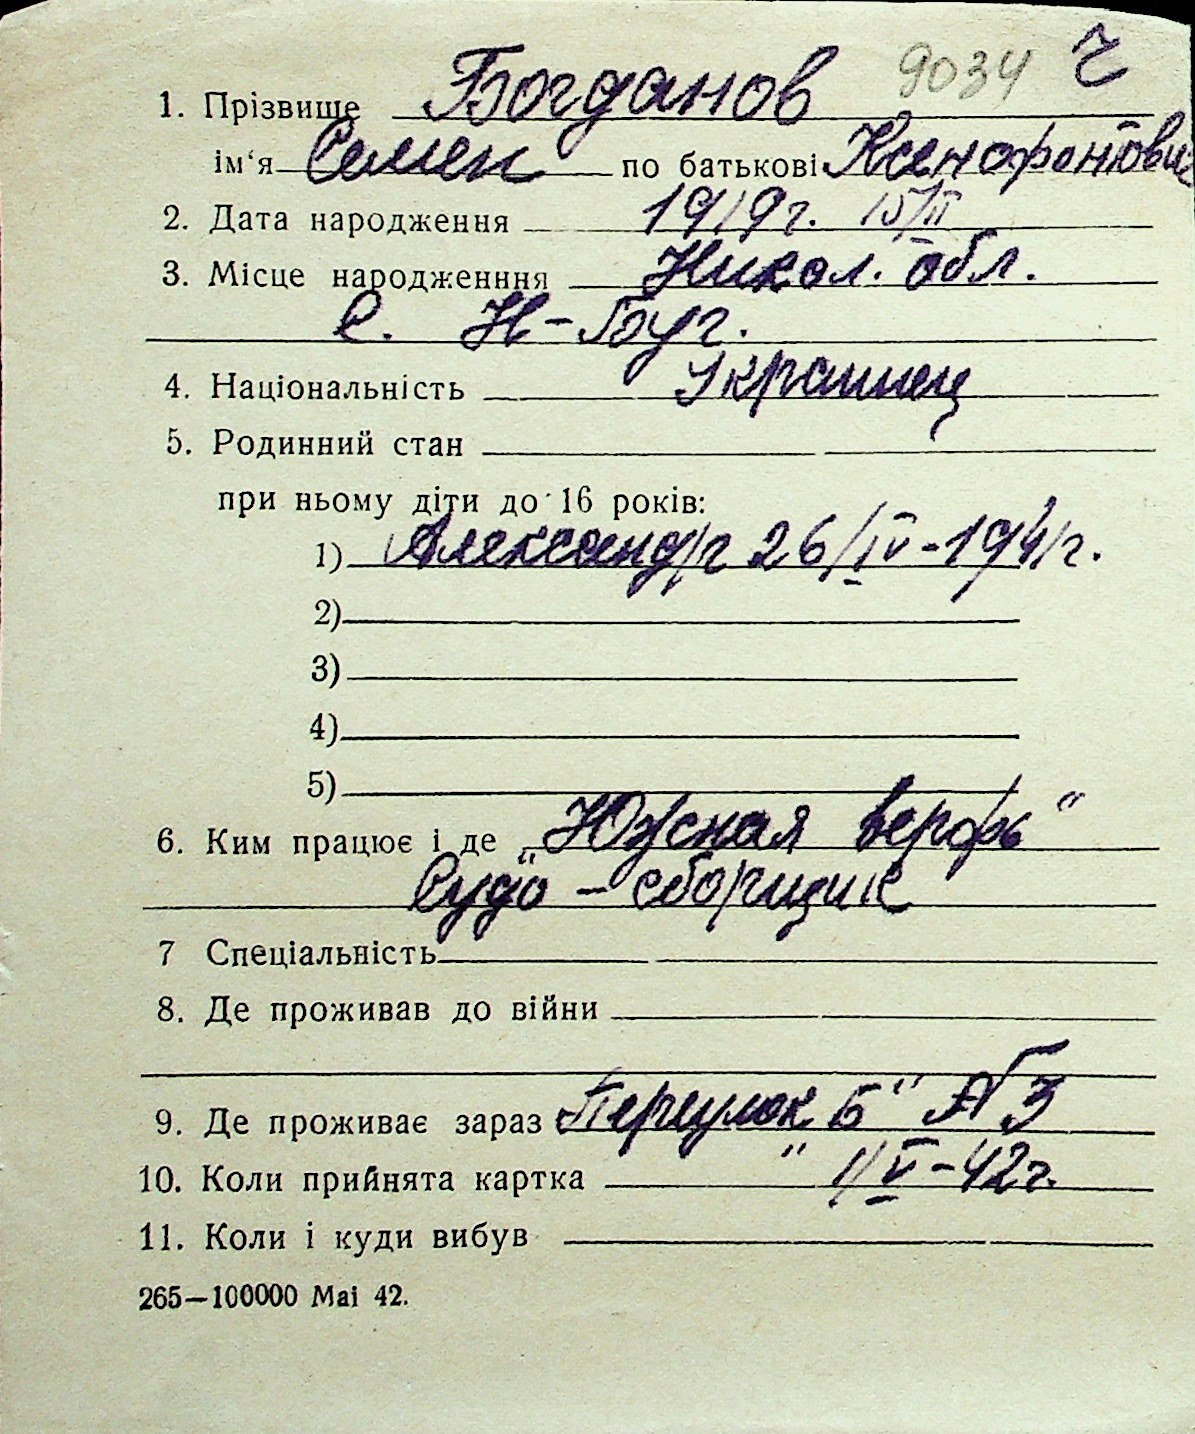 9034 Ч
1. Прізвище Богданов
ім‘я Семен по батькові Ксенофонтович
2. Дата народження 1919г. 15/II
3. Місце народженння Никол. обл.
с. Н-Буг.
4. Національність Украинец
5. Родинний стан
при ньому діти до 16 років:
1) Александр 26/IV-1941г.
2)
3)
4)
5)
6. Ким працює і де „Южная верфь“
Судо-сборщик
7 Спеціальність
8. Де проживав до війни
9. Де проживає зараз Переулок Б" № 3
10. Коли прийнята картка " 1/V-42г.
11. Коли і куди вибув
265—100000 Mai 42.